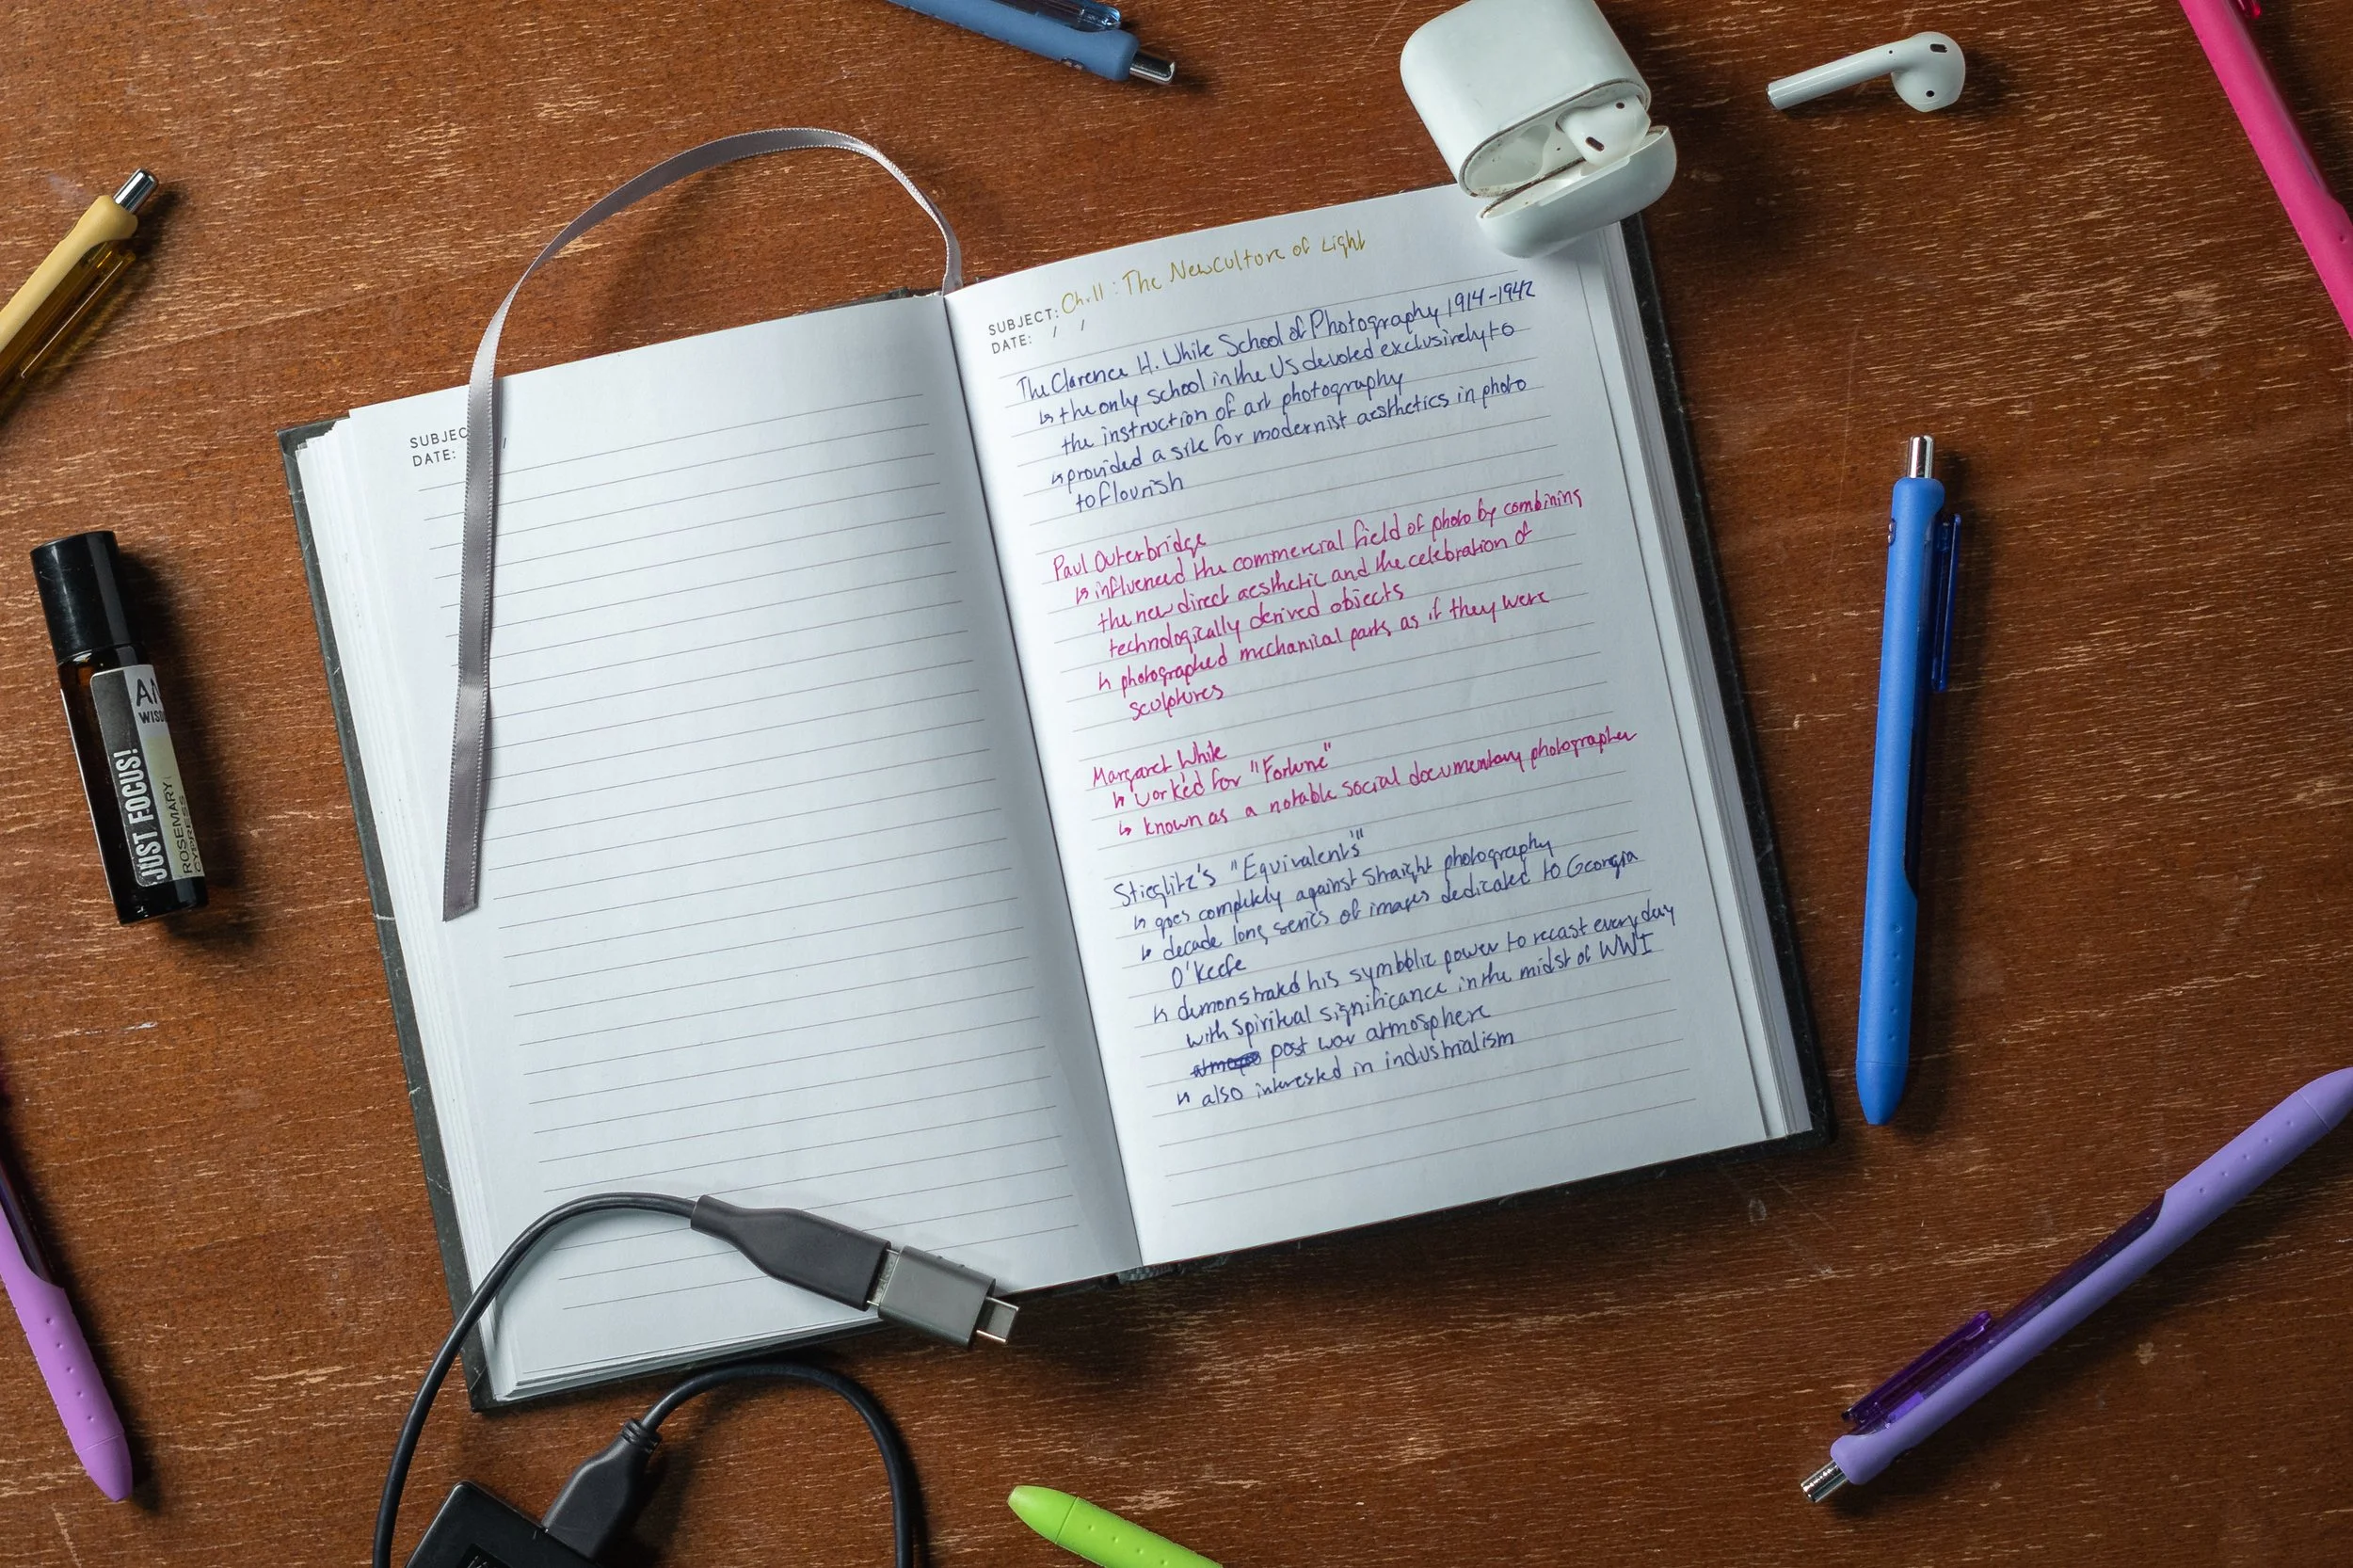 SUBJEC
DATE:
SUBJECT: Ch.11 : The New Culture of Light
DATE: / /
The Clarence H. White School of Photography 1914-1942
↳ the only school in the US devoted exclusively to
the instruction of art photography
↳ provided a site for modernist aesthetics in photo
to flourish
Paul Outerbridge
↳ influenced the commercial field of photo by combining
the new direct aesthetic and the celebration of
technologically derived objects
↳ photographed mechanical parts as if they were
sculptures
Margaret White
↳ worked for "Fortune"
↳ known as a notable social documentary photographer
Stieglitz's "Equivalents"
↳ goes completely against straight photography
↳ decade long series of images dedicated to Georgia
O'Keefe
↳ demonstrated his symbolic power to recast everyday
with spiritual significance in the midst of WWI
post war atmosphere
↳ also interested in industrialism
AN
WISD
JUST FOCUS!
ROSEMARY
CYPRESS